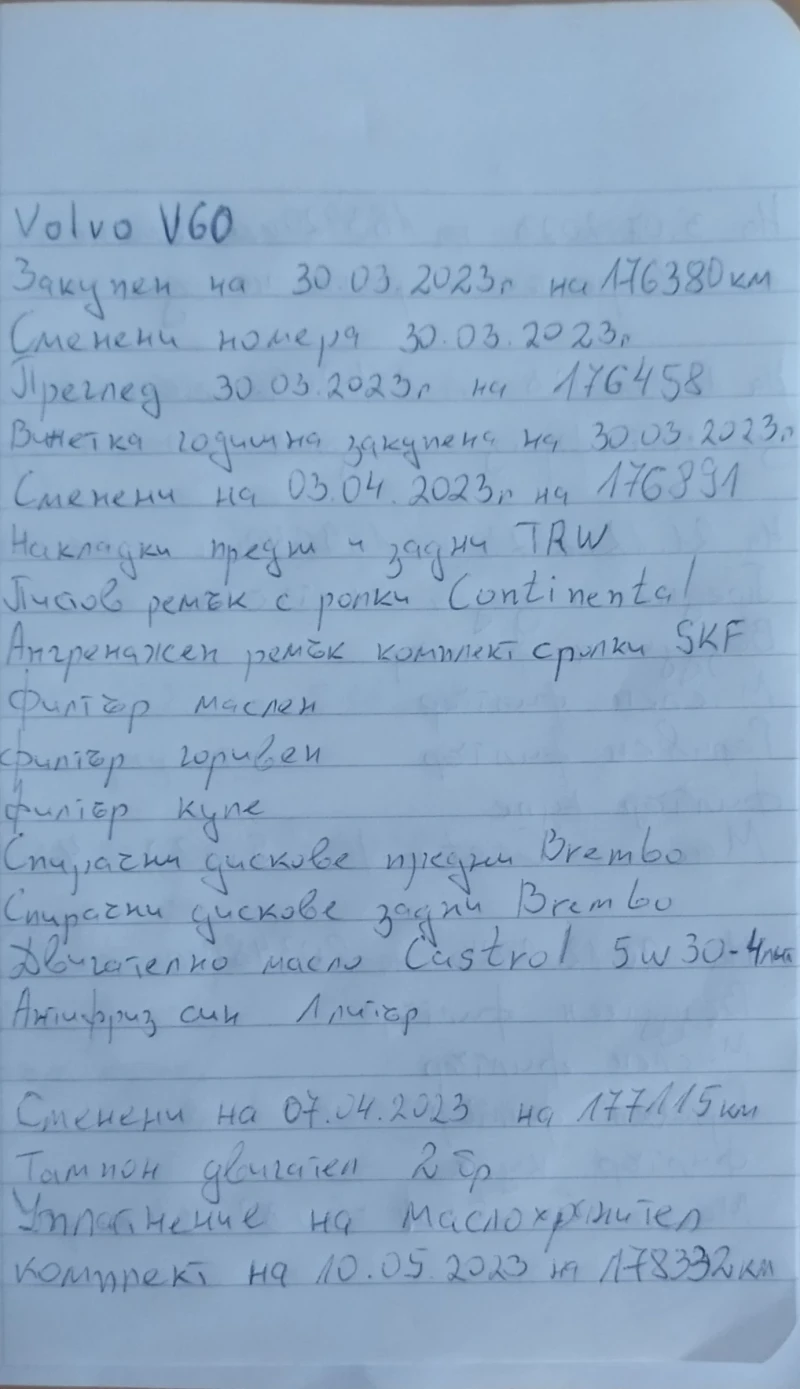 Volvo V60
Закупен на 30.03.2023г на 176380км
Сменени номера 30.03.2023г
Преглед 30.03.2023г на 176458
Винетка годишна закупена на 30.03.2023г
Сменени на 03.04.2023г на 176891
Накладки предни и задни TRW
Пистов ремък с ролки Continental
Ангренажен ремък комплект с ролки SKF
Филтър маслен
Филтър горивен
Филтър купе
Спирачни дискове предни Brembo
Спирачни дискове задни Brembo
Двигателно масло Castrol 5w30-4лит
Антифриз син 1литър
Сменени на 07.04.2023 на 177115км
Тампон двигател 2бр
Уплътнение на
комплект на 10.05.2023 на 178332км